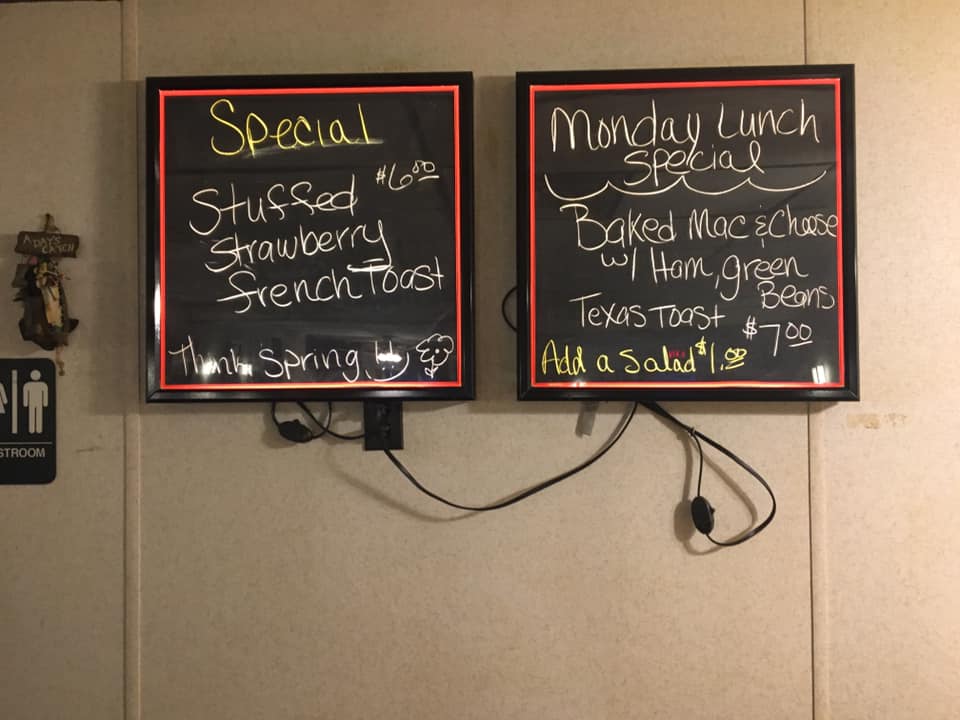 Special
$6.00
Stuffed
Strawberry
French Toast
Think Spring
Monday Lunch
Special
Baked Mac & Cheese
w/ Ham, green
Beans
Texas Toast
$7.00
Add a Salad $1.00
A DAY'S
CATCH
STROOM